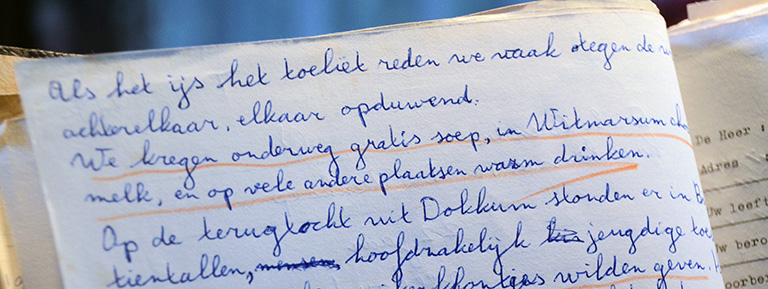 Als het ijs het toeliet reden we vaak tegen de
achterelkaar, elkaar opduwend.
We kregen onderweg gratis soep, in Witmarsum
melk, en op vele andere plaatsen warm drinken.
Op de terugtocht uit Dokkum stonden er in
tientallen, mensen, hoofdzakelijk jeugdige
wilden geven.
De Heer :
Adres :
Uw leeft
Uw bero